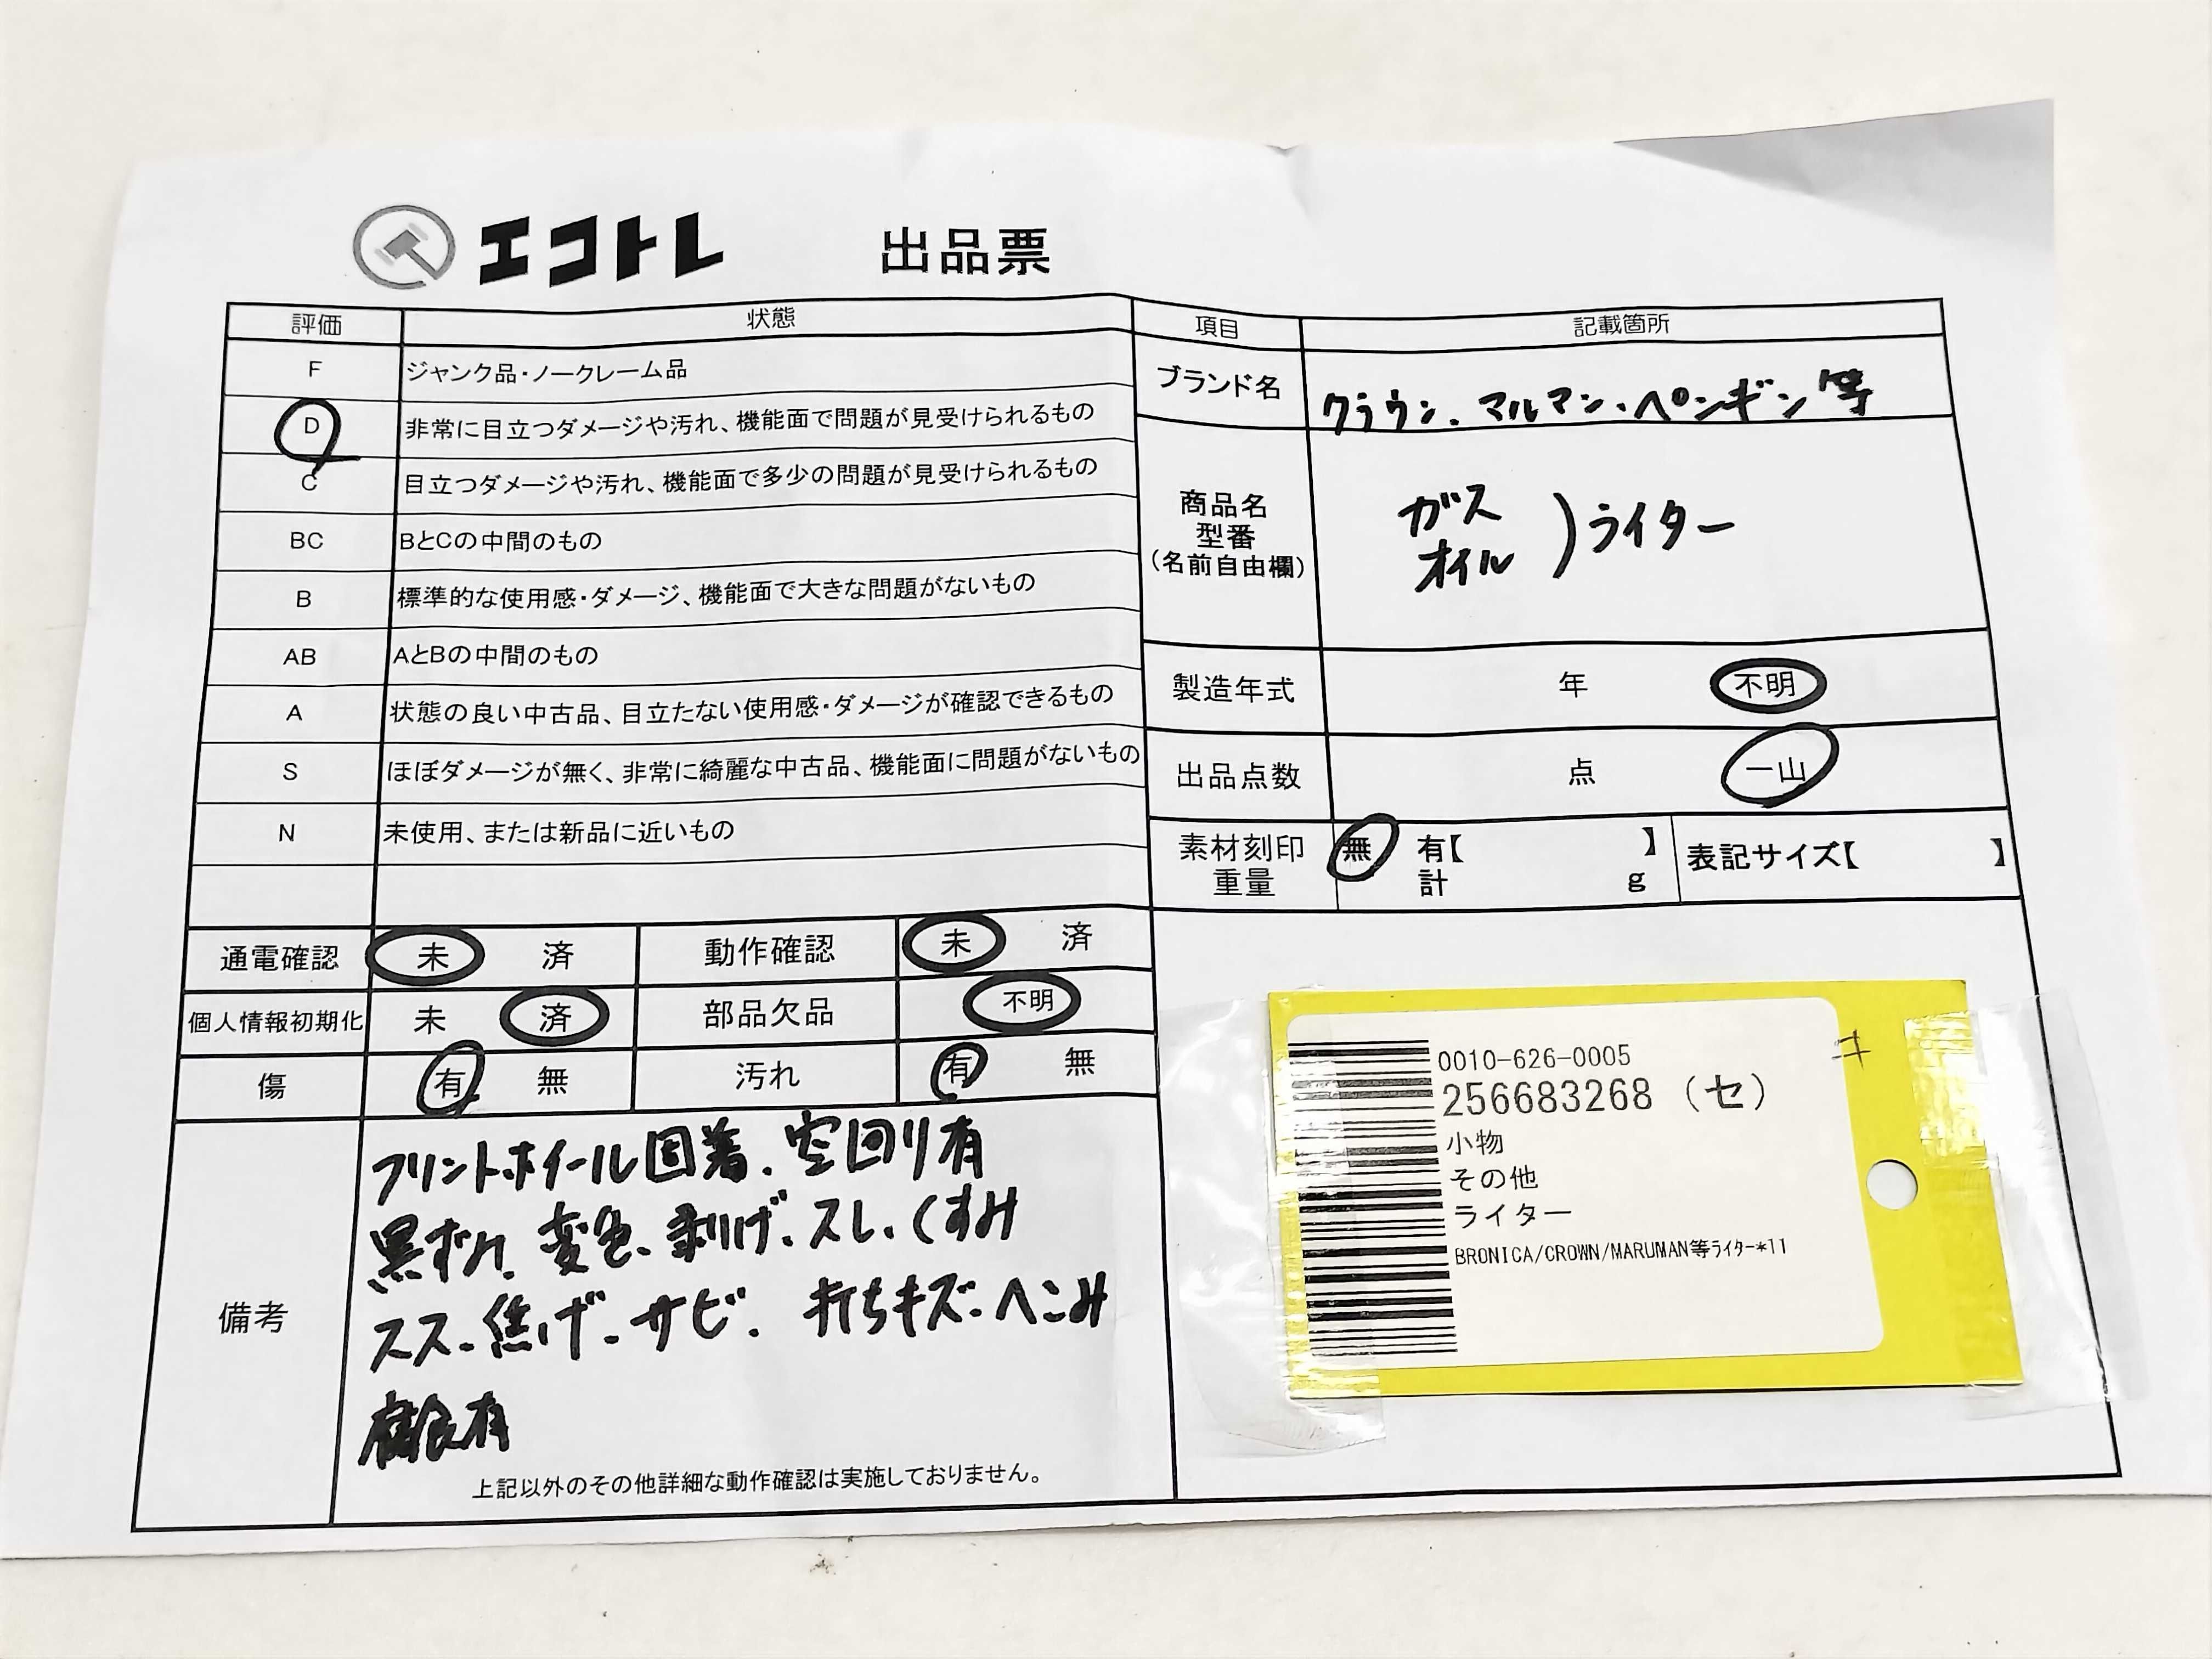 エコトレ 出品票
評価 状態
F ジャンク品・ノークレーム品
D 非常に目立つダメージや汚れ、機能面で問題が見受けられるもの
C 目立つダメージや汚れ、機能面で多少の問題が見受けられるもの
BC BとCの中間のもの
B 標準的な使用感・ダメージ、機能面で大きな問題がないもの
AB AとBの中間のもの
A 状態の良い中古品、目立たない使用感・ダメージが確認できるもの
S ほぼダメージが無く、非常に綺麗な中古品、機能面に問題がないもの
N 未使用、または新品に近いもの
項目 記載箇所
ブランド名 クラウン、マルマン・ペンギン等
商品名
型番
(名前自由欄)
ガス
オイル
)ライター
製造年式 年 不明
出品点数 点 一山
素材刻印 無 有【 】 表記サイズ【 】
重量 計 g
通電確認 未 済 動作確認 未 済
個人情報初期化 未 済 部品欠品 不明
傷 有 無 汚れ 有 無
備考
フリントホイール固着、空回り有
黒ずみ、変色、剥げ、スレ、くすみ
スス、焦げ、サビ、打ちキズ、へこみ
腐食有
上記以外のその他詳細な動作確認は実施しておりません。
0010-626-0005
256683268 (セ)
小物
その他
ライター
BRONICA/CROWN/MARUMAN等ﾗｲﾀｰ*11